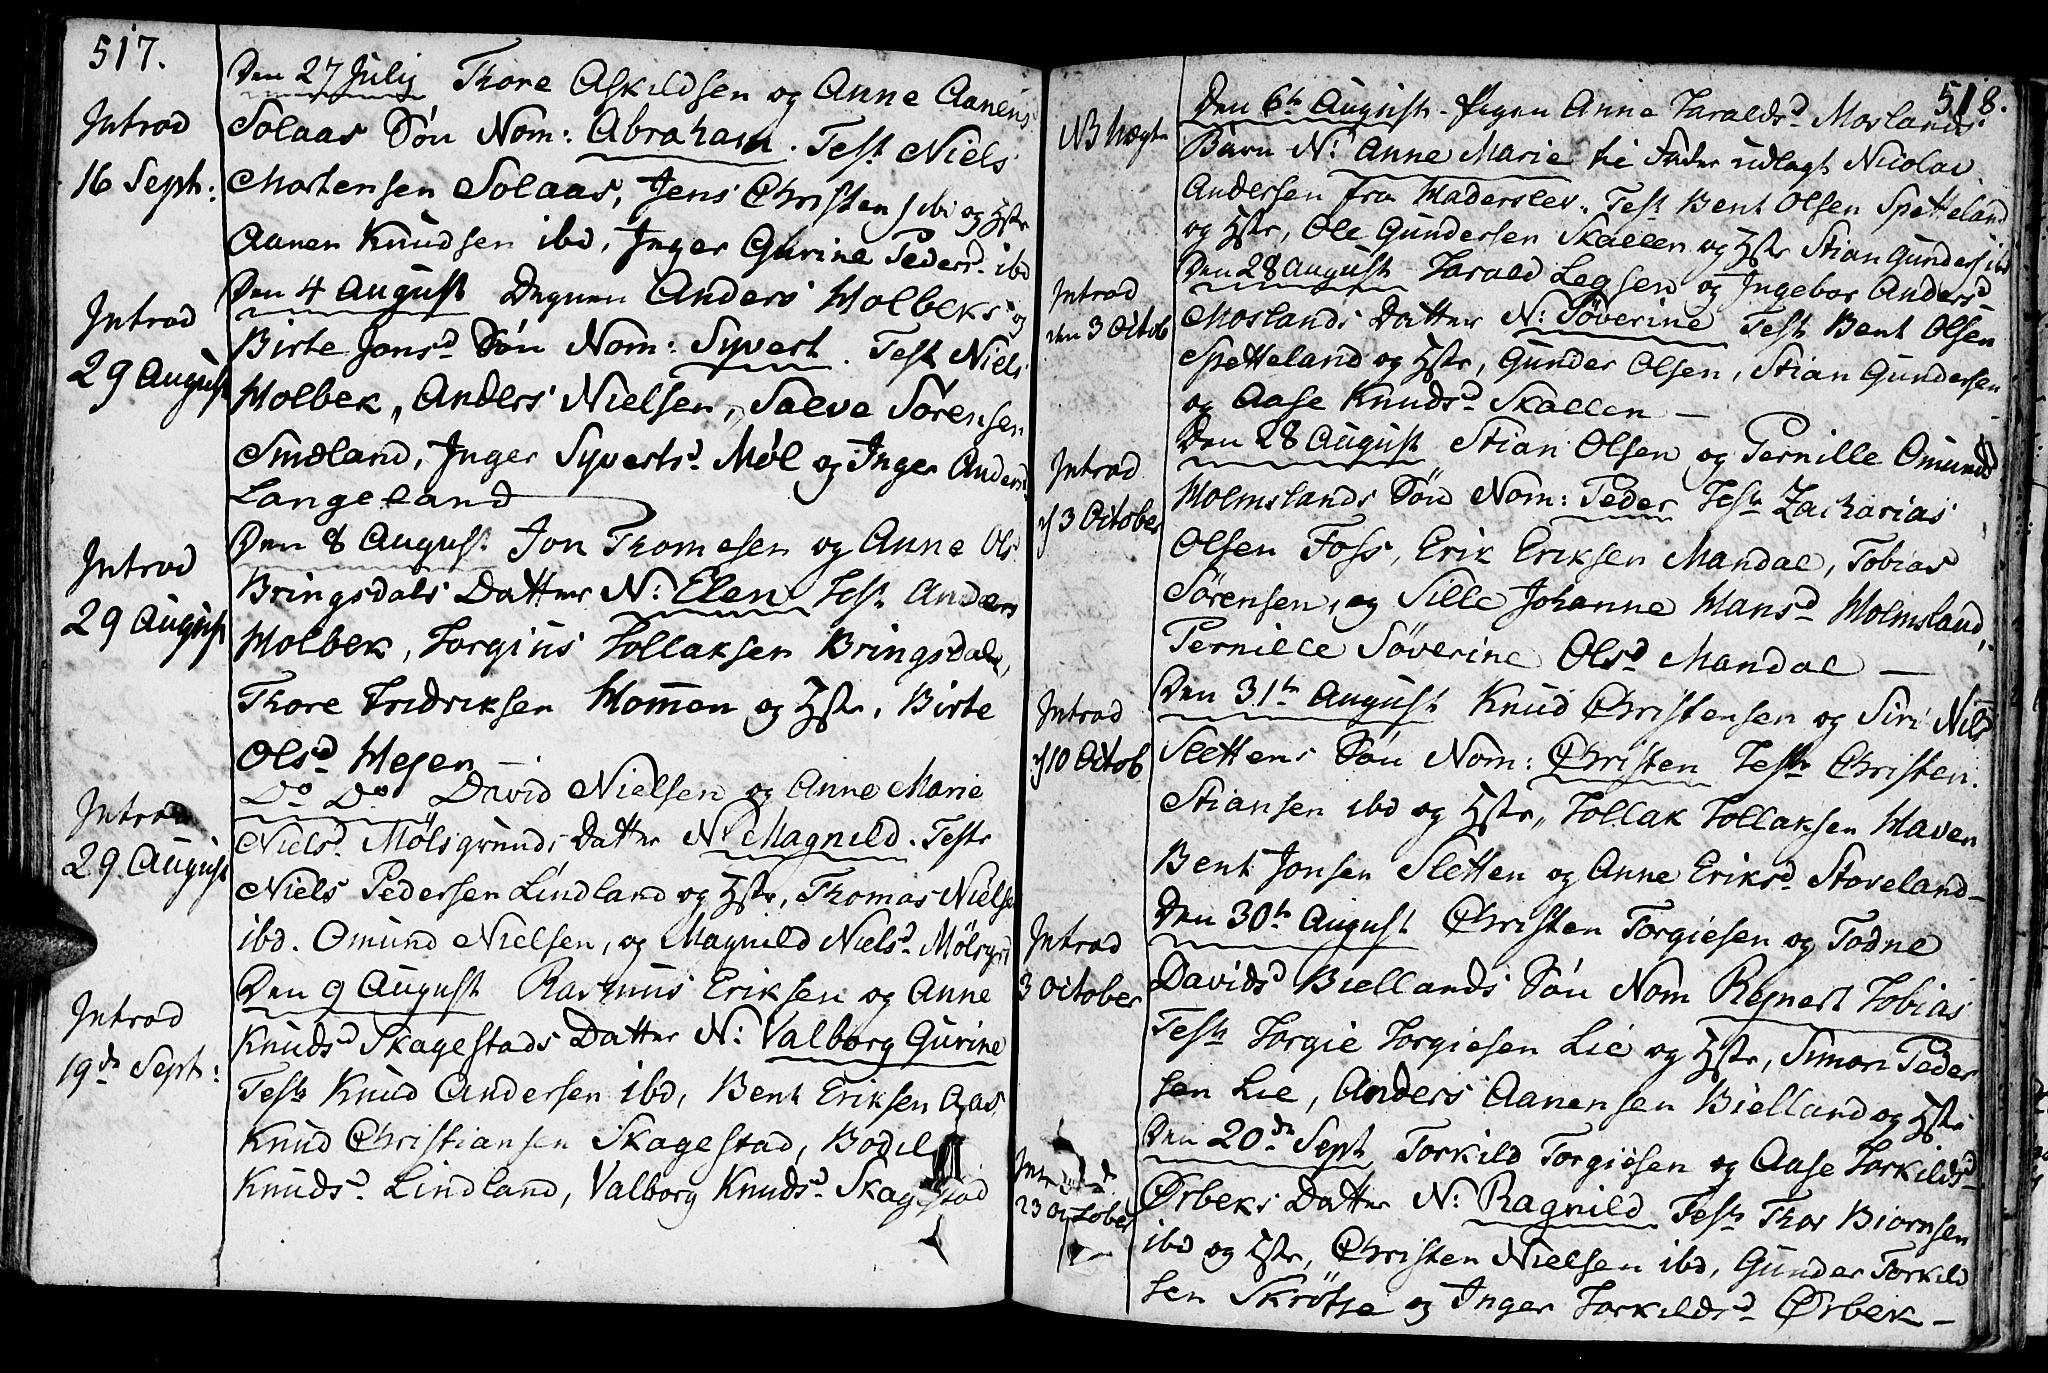 517.
Introd
16 Sept:
Den 27 Julij Thore Askildsen og Anne Aanens
Solaas Søn Nom: Abraham. Test Niels
Mortensen Solaas, Jens Christens ibi og Hstr
Aanen Knudsen ibd, Inger Gurine Pedersd. ibd
Introd
29 August
Den 4 August Degnen Anders Holbeks og
Birte Jonsd Søn Nom: Syvert. Test Niels
Holbek, Anders Nielsen, Salve Sørensen
Smeland, Inger Syvertsd. Møl og Inger Andersd
Langeland
Introd
29 August
Den 8 August Jon Thomesen og Anne Ols
Bringsdals Datter N: Elen Test Anders
Holbek, Torgius Tollaksen Bringsdal,
Thore Fridriksen Homen og Hstr, Birte
Olsd Hegen
Introd
29 August
Do Do David Nielsen og Anne Marie
Nielsd. Mølsgrunds Datter N: Magnild. Test
Niels Pedersen Lindland og Hstr, Thomas Niels
ibd. Omund Nielsen, og Magnild Nielsd. Mølsgrd
Introd
19de Sept:
Den 9 August Rasmus Eriksen og Anne
Knudsd Skagestads Datter N: Valborg Gurine
Test Knud Andersen ibd, Bent Eriksen Aas
Knud Christiansen Skagestad, Bodil
Knudsd. Lindland, Valborg Knudsd. Skagestad
518.
NB Uægte
Den 6te August Pigen Anne Taraldsd Moslands
Barn N: Anne Marie til Fader udlagt Nicolai
Andersen fra Haderslev. Test Bent Olsen Spetteland
og Hstr, Ole Gundersen Skallen og Hstr Stian Gunders ibd
Introd
den 3 Octob
Den 28 August Tarald Legsen og Ingebor Andersd
Moslands Datter N: Søverine Test Bent Olsen
Spetteland og Hstr, Gunder Olsen, Stian Gundersen
og Aase Knudsd Skallen —
Introd
3 October
Den 28 August Stian Olsen og Pernille Omunds
Holmslands Søn Nom: Peder Test Zacharias
Olsen Foss, Erik Eriksen Mandal, Tobias
Sørensen, og Sille Johanne Hansd Holmsland,
Pernille Søverine Olsd Mandal —
Introd
10 Octob
Den 31te August Knud Christensen og Siri Nils
Slettens Søn Nom: Christen Test Christen
Stiansen ibd og Hstr, Tollak Tollaksen Haven
Bent Jonsen Sletten og Anne Eriksd Stoveland —
Introd
3 October
Den 30te August Christen Torgiesen og Todne
Davidsd Biellands Søn Nom Reinert Tobias
Test Torgie Torgiesen Lie og Hstr, Simon Peder
sen Lie, Anders Aanensen Bielland og Hstr
Introd
23 October
Den 20de Sept Torkild Torgiøsen og Aase Torkildsd
Ørbeks Datter N: Ragnild Test Thor Biørnsen
ibd og Hstr, Christen Nielsen ibd, Gunder Torkild
sen Skrøtse og Inger Torkildsd Ørbek —